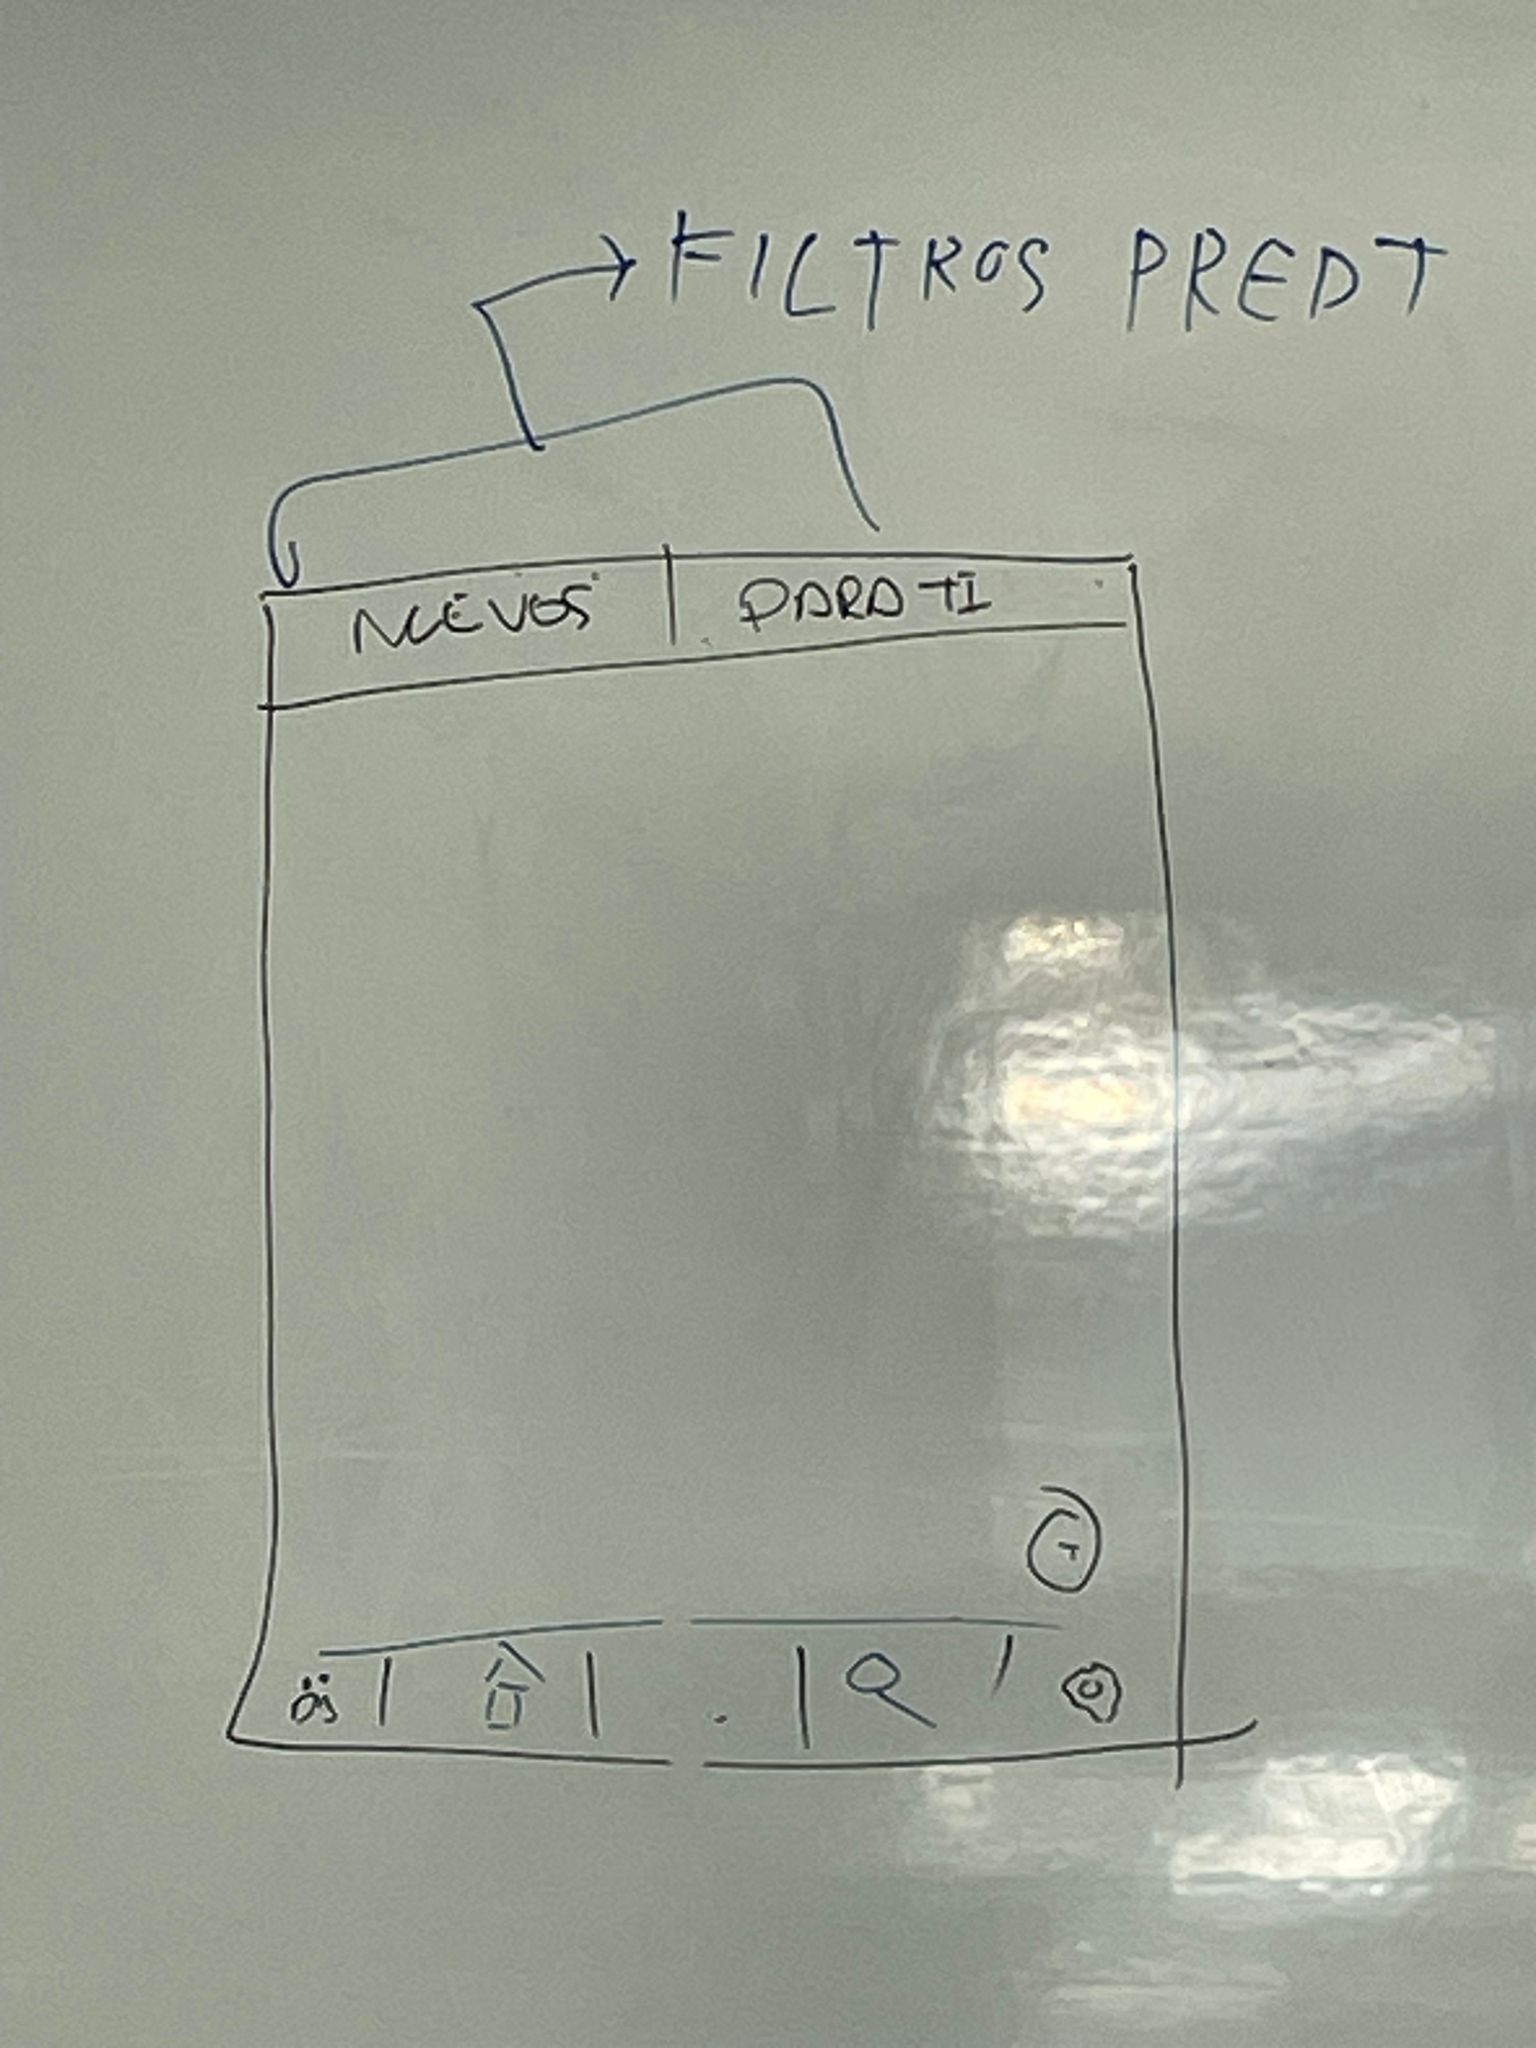 FILTROS PREDT
NUEVOS PARA TI